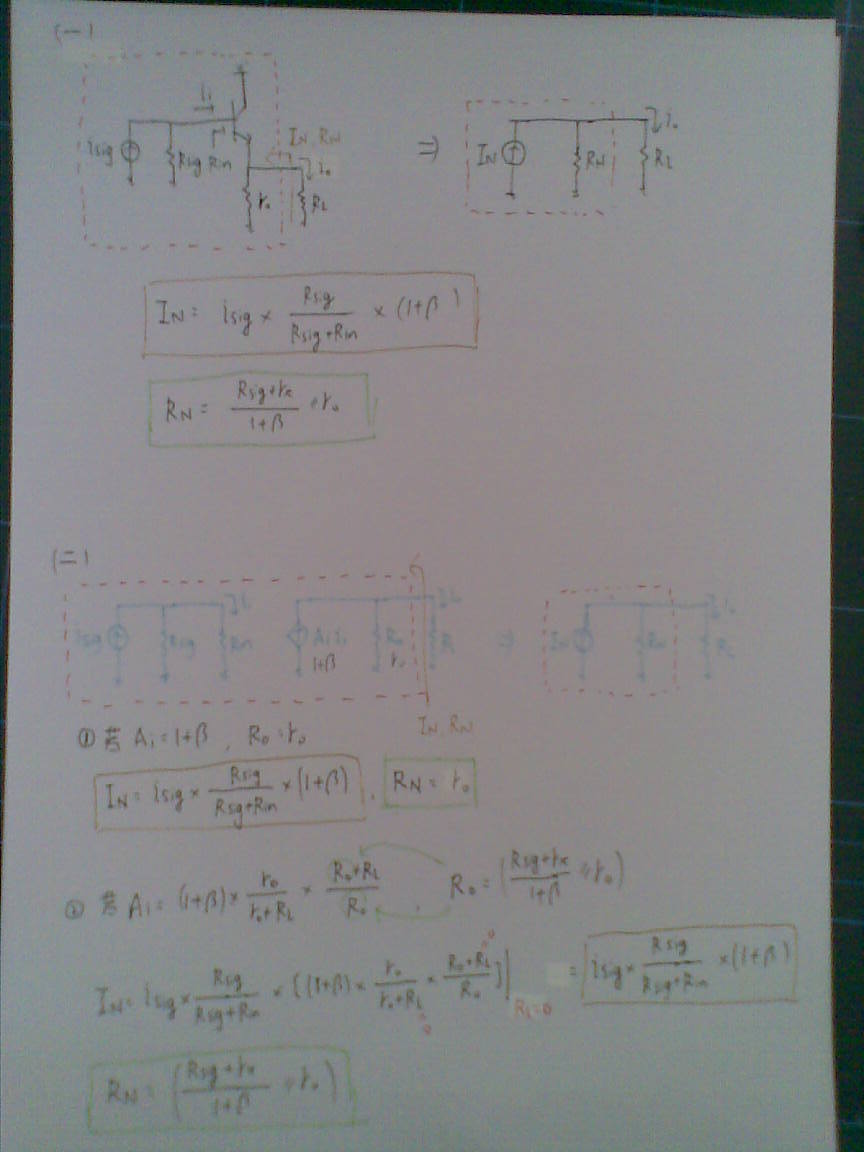 (一)
Ii
isig Rsig Rin IN, RN Io
ro RL
⇒ IN RN Io RL
IN = isig × Rsig / (Rsig+Rin) × (1+β)
RN = (Rsig+rπ) / (1+β) // ro
(二)
isig Rsig Rin Ii Ai Ii Ro Io RL ⇒ IN RN Io RL
1+β ro
IN, RN
① 若 Ai = 1+β , Ro = ro
IN = isig × Rsig / (Rsig+Rin) × (1+β) , RN = ro
② 若 Ai = (1+β) × ro / (ro+RL) × (Ro+RL) / Ro Ro = ((Rsig+rπ) / (1+β) // ro)
IN = isig × Rsig / (Rsig+Rin) × [(1+β) × ro / (ro+RL) × (Ro+RL) / Ro] | RL=0 = isig × Rsig / (Rsig+Rin) × (1+β)
RN = ((Rsig+rπ) / (1+β) // ro)